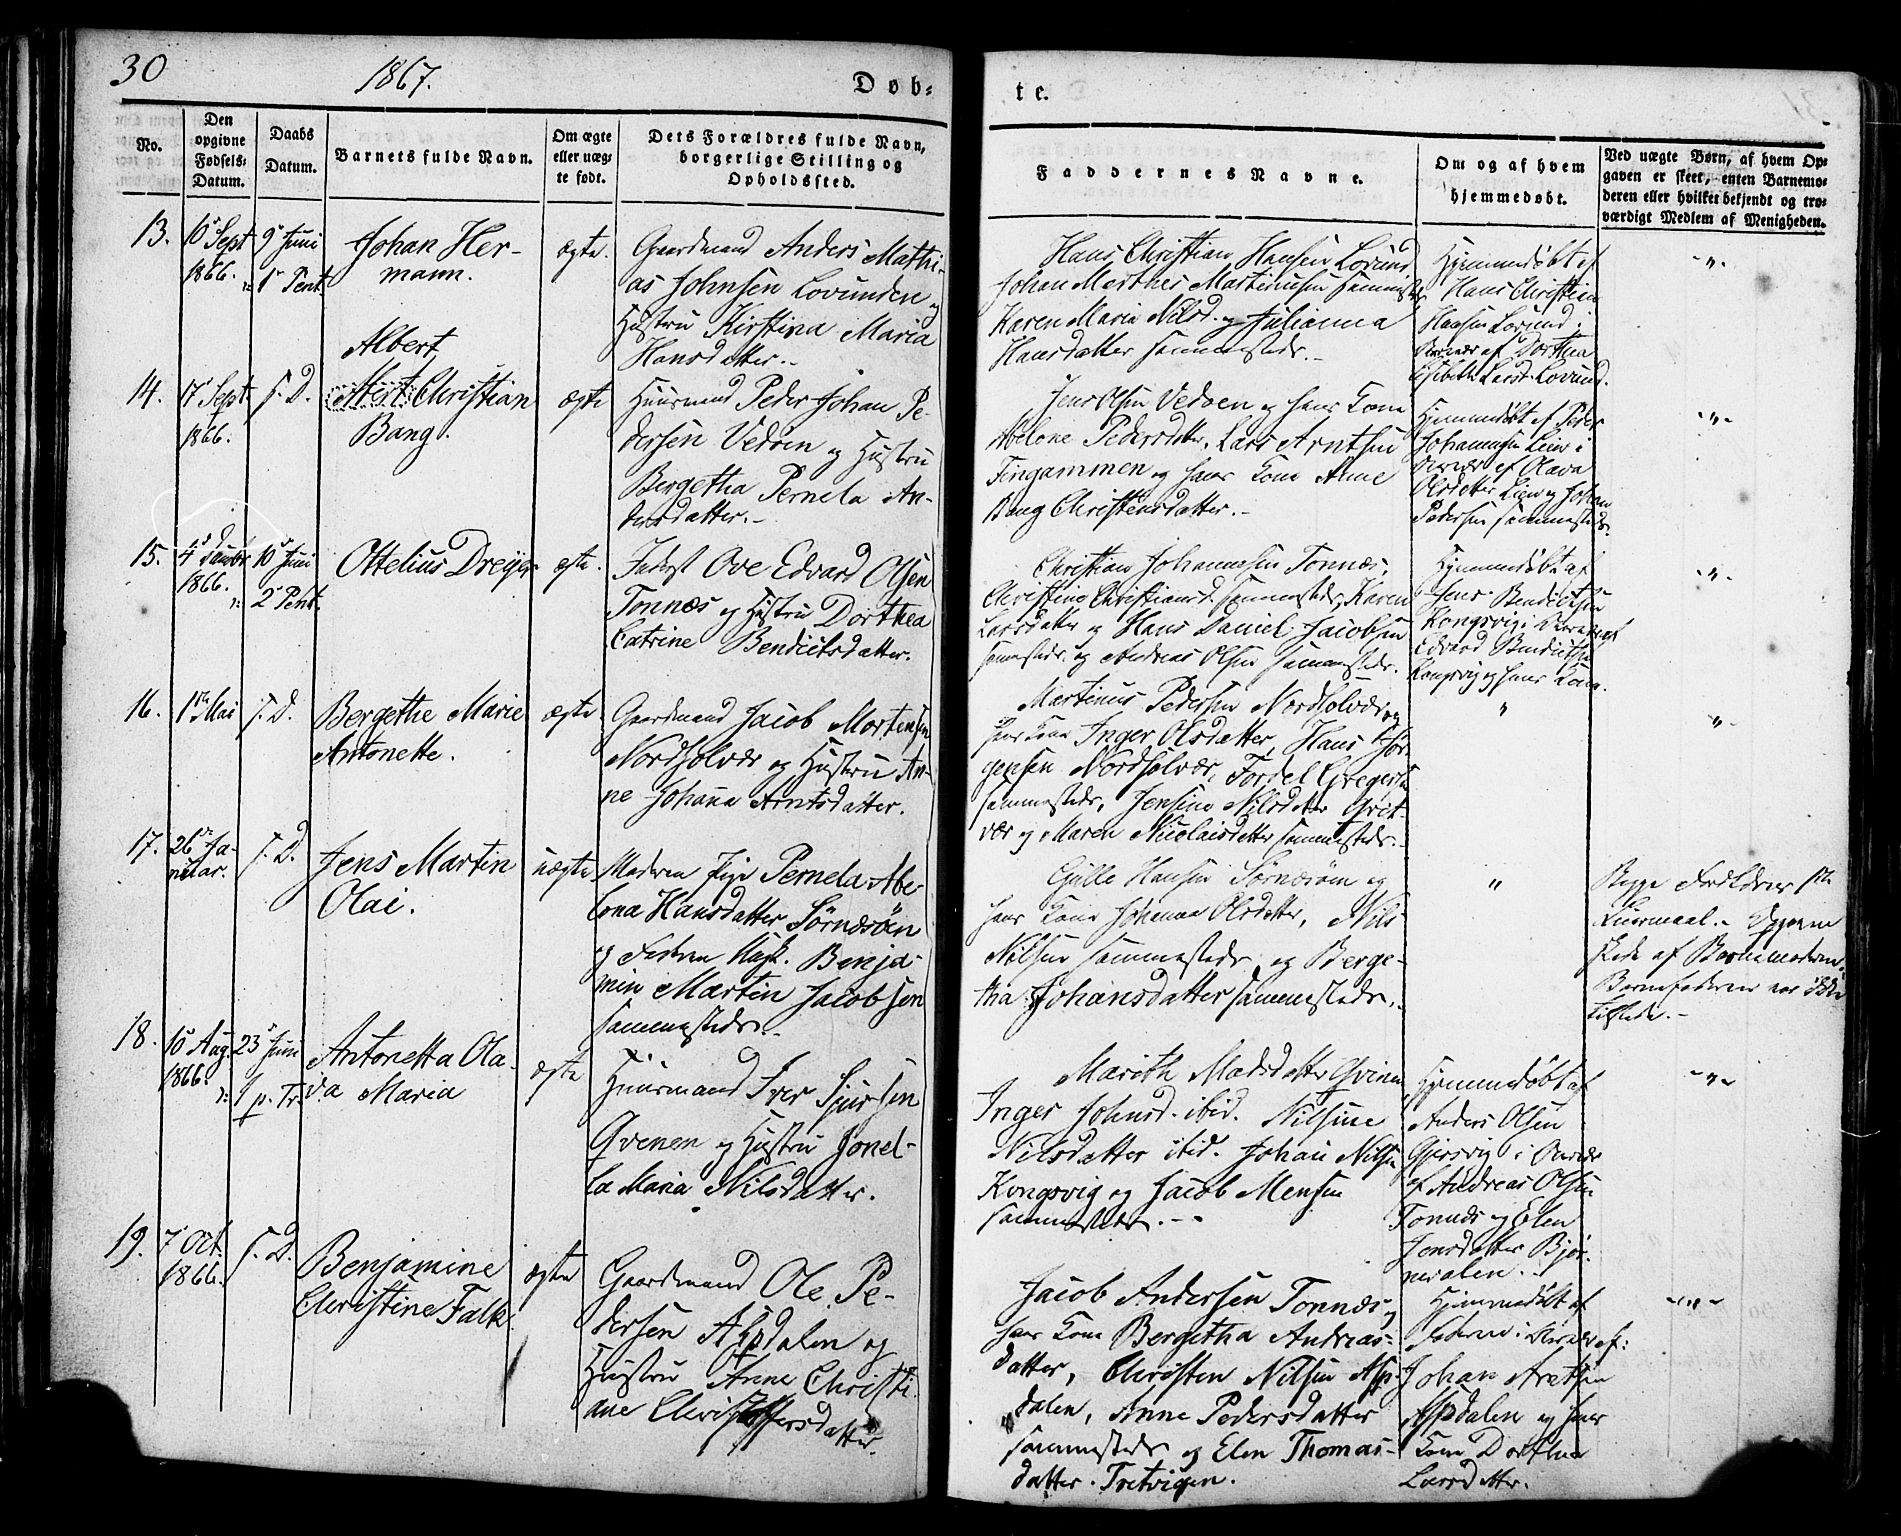 30
1867.
Døb-
te.
No.
Den
opgivne
Fødsels-
Datum.
Daabs
Datum.
Barnets fulde Navn.
Om ægte
eller uæg-
te født.
Dets Forældres fulde Navn,
borgerlige Stilling og
Opholdssted.
Faddernes Navne.
Om og af hvem
hjemmedøbt.
Ved uægte Børn, af hvem Op-
gaven er skeet, enten Barnemo-
deren eller hvilket bekjendt og tro-
værdigt Medlem af Menigheden.
13.
10 Sept
1866.
9 Juni
1 Pent.
Johan Her-
mann.
ægte.
Gaardmand Anders Mathi-
as Johnsen Lovunden og
Hustru Kirstina Maria
Hansdatter.-
Hans Christian Hansen Lovund
Johan Marthes Martinusen sammested
Karen Maria Nilsd. og Julianna
Hansdatter sammesteds.-
Hjemmedøbt af
Hans Christian
Hansen Lovund i
Nærvær af Dorthea
Elisabeth Larsd. Lovund.
-"-
14.
17 Sept
1866.
s. D.
Albert
Abert Christian
Bang.
ægte
Huusmand Peder Johan Pe-
dersen Vedøen og Hustru
Bergetha Pernela An-
dersdatter.-
Jens Olsen Vedøen og hans Kone
Abelone Pedersdatter, Lars Arntsen
Tingammen og hans Kone Anne
Bang Christensdatter.-
Hjemmedøbt af Peder
Johannesen Lien i
Nærvær af Olava
Olsdatter Lien og Johan
Pedersen sammesteds.
-"-
15.
1866.
10 Juni
2 Pent.
Ottelius Dreyer
ægte.
Inderst Ove Edvard Olsen
Tonnæs og Hustru Dorthea
Catrine Bendictsdatter.
Christian Johannesen Tonnæs,
Christine Christiansd. sammesteds, Karen
Larsdatter og Hans Daniel Jacobsen
sammesteds og Andreas Olsen sammesteds.
Hjemmedøbt af
Jens Bendictsen
Kongsvig i Nærvær af
Edvard Bendictsen
Kongsvig og hans Kone.
-"-
16.
1ste Mai
s. D.
Bergethe Marie
Antonette.
ægte.
Gaardmand Jacob Mortensen
Nordsolvær og Hustru An-
ne Johana Arntsdatter.
Martinus Pedersen Nordsolvær og
hans Kone Inger Olsdatter, Hans Jør-
gensen Nordsolvær, Fordel Gregersen
sammesteds, Jensine Nilsdatter
vær og Maren Nicolaisdatter sammesteds.-
"
"-
17.
26 Ja-
nuar.
s. D.
Jens Martin
Olai.
uægte
Moderen Pige Pernela Abe-
lona Hansdatter Sørnæsøen
og Faderen Ungk. Benja-
min Martin Jacobsen
sammesteds.-
Gulle Hansen Sørnæsøen og
hans Kone Johanna Olsdatter, Nils
Nilsen sammesteds og Berge-
tha Johansdatter sammesteds.-
"
Begge Forældres 1ste
Leiermaal.- Opgaven
skede af Barnemoderen.
Barnefaderen var ikke
tilstede.-
18.
10 Aug.
1866.
23 Juni
1 p. Tr.
Antonetta Ola-
va Maria
ægte
Huusmand Iver Sjursen
Qvenen og Hustru Jonel-
la Maria Nilsdatter.
Marith Madsdatter Qvinen
Inger Johnsd. ibid. Nilsine
Nilsdatter ibid. Johan Nilsen
Kongsvig og Jacob Mensen
sammesteds.--
Hjemmedøbt af
Anders Olsen
Gjersvig i Nærvær
af Andreas Olsen
Tonnæs og Elen
Jensdatter Bjør-
nerdalen.-
-"-
19.
7 Oct.
1866.
s. D.
Benjamine
Christine Falk.
ægte
Gaardmand Ole Pe-
dersen Aspdalen og
Hustru Anne Christi-
ane Christoffersdatter.
Jacob Andersen Tonnæs og
hans Kone Bergetha Andreas-
datter, Christen Nilsen Asp-
dalen, Anne Pedersdatter
sammesteds og Elen Thomas-
datter Tretvigen.
Hjemmedøbt af
Faderen i Nærvær af:
Johan Aretsen
Aspdalen og hans
Kone Dorthea
Larsdatter.
-"-